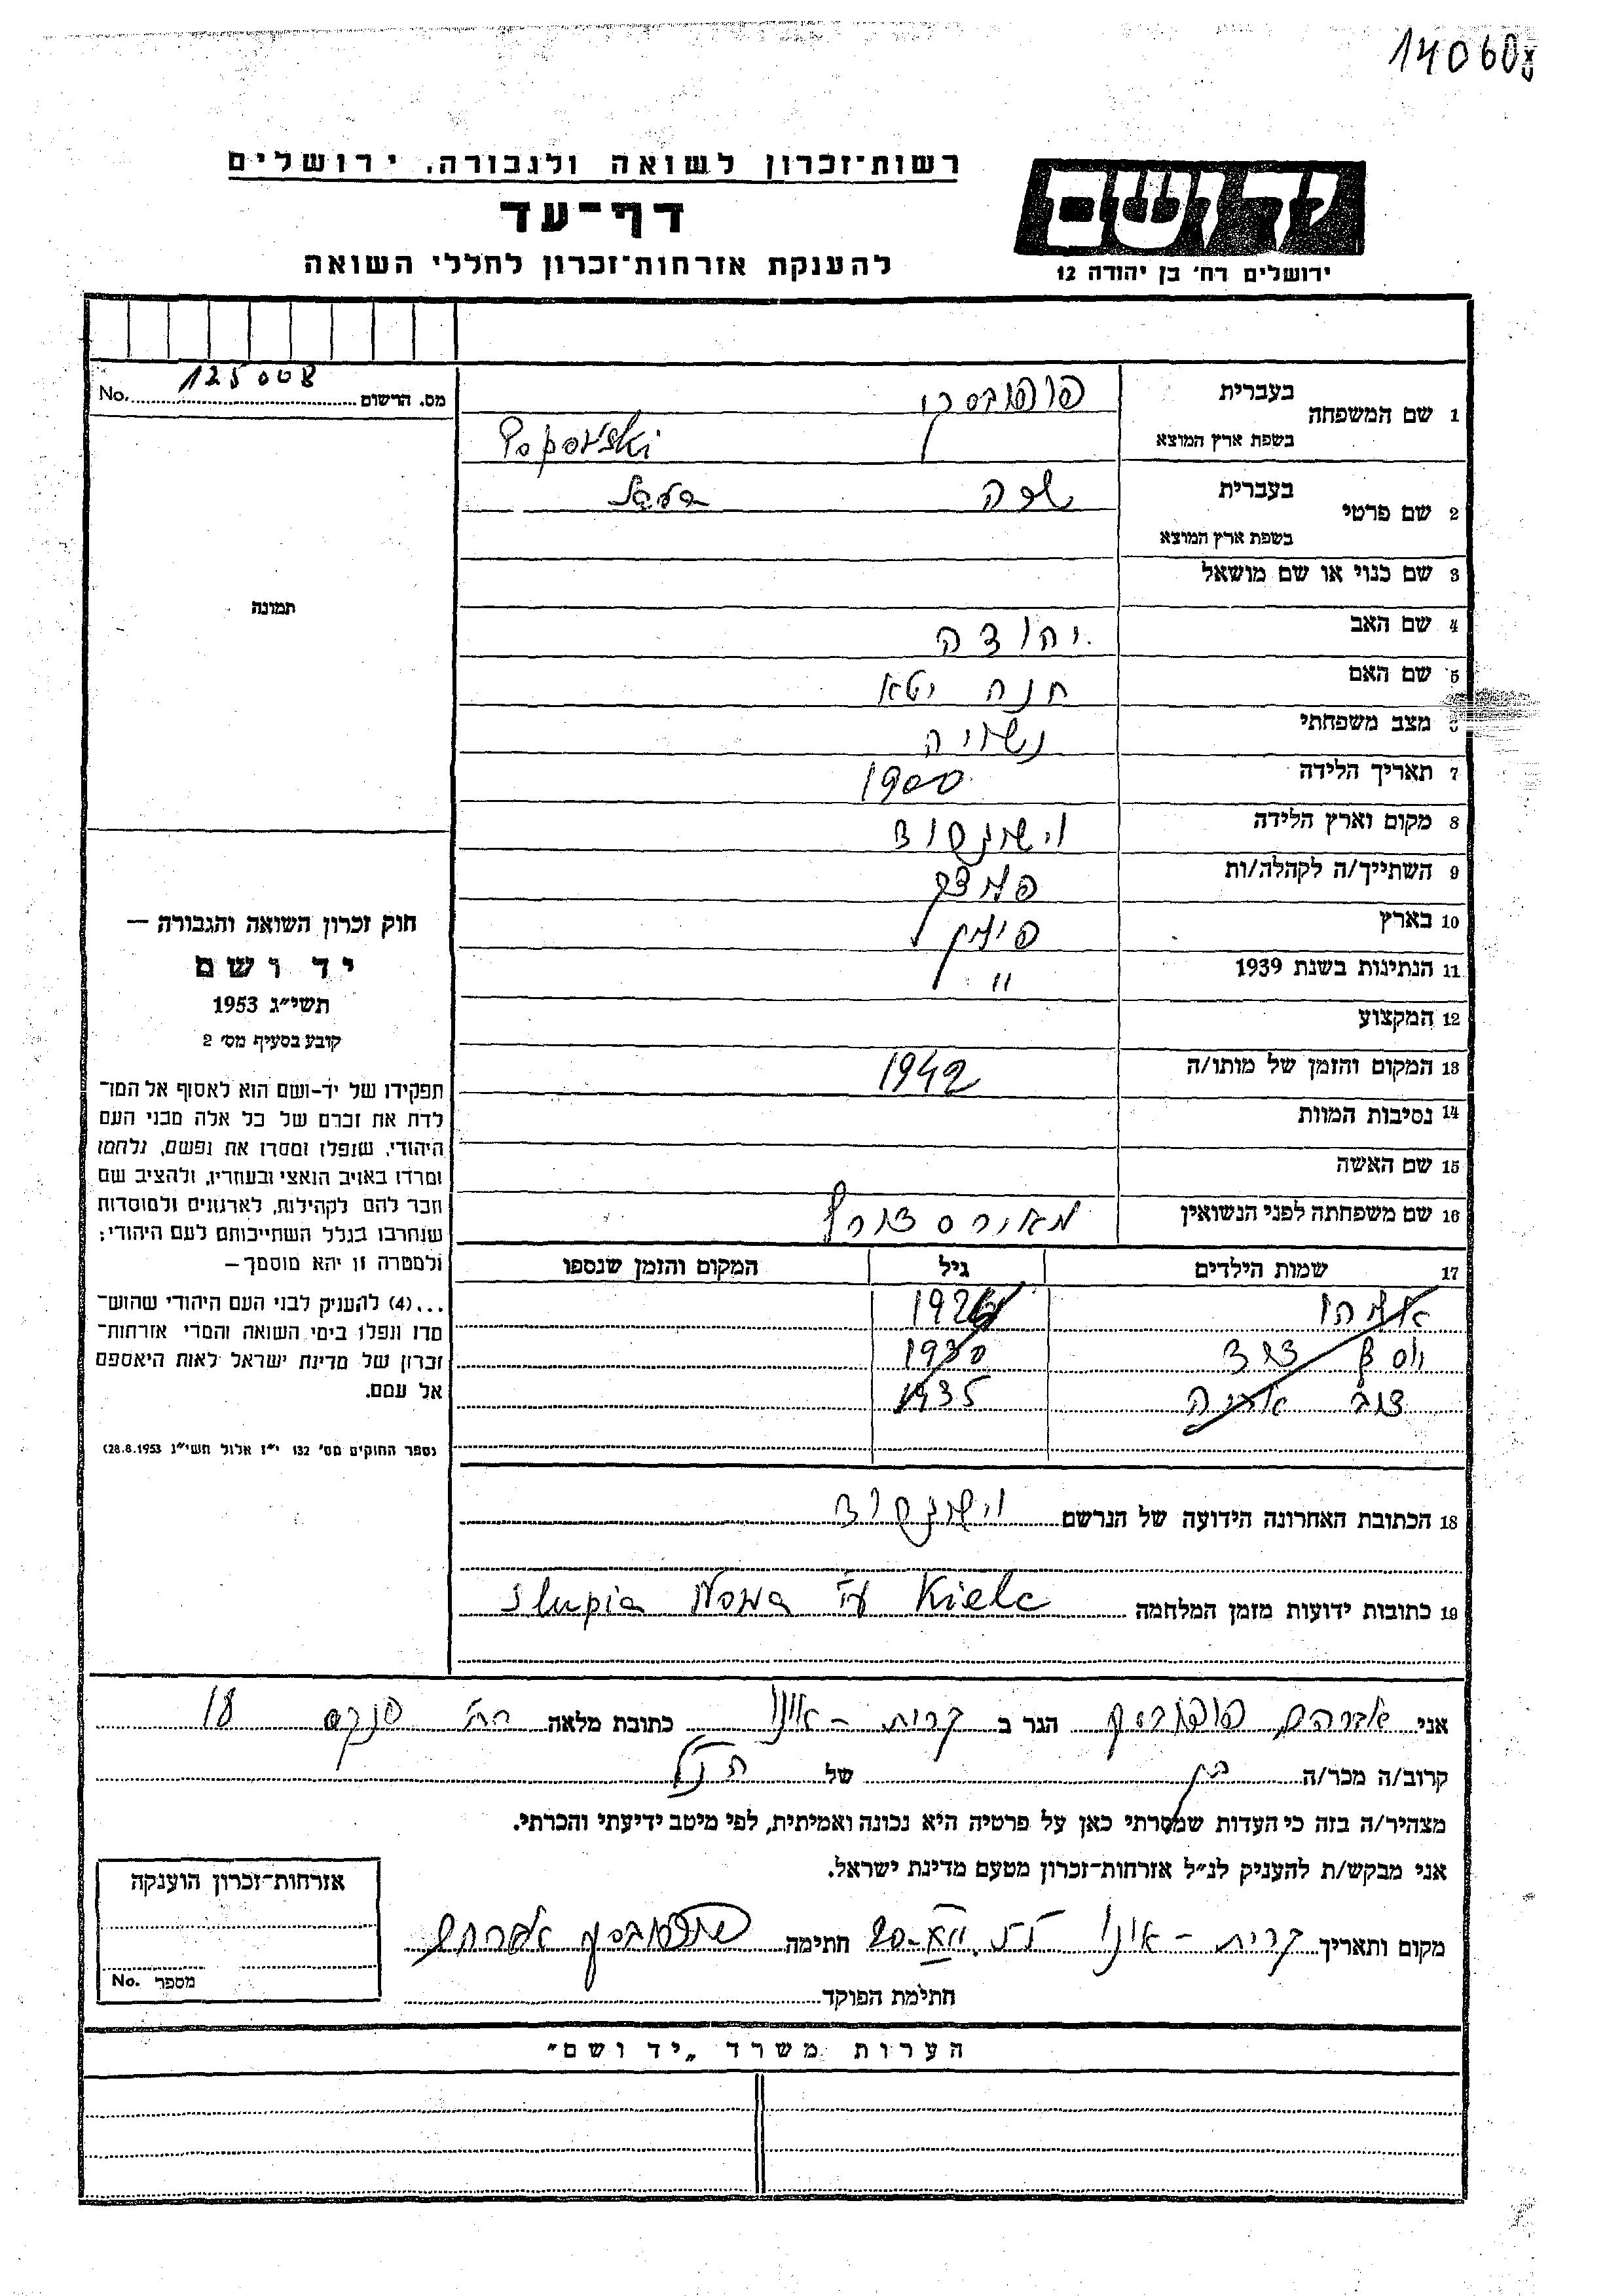 14060
רשות־זכרון לשואה ולגבורה, ירושלים
דף־עד
להענקת אזרחות־זכרון לחללי השואה
ידושם
ירושלים רח' בן יהודה 12
מס. הרשום 125008 No.
1 שם המשפחה
בעברית פופובסקי
בשפת ארץ המוצא Popovski
2 שם פרטי
בעברית שרה
בשפת ארץ המוצא
3 שם כנוי או שם מושאל
4 שם האב יהודה
5 שם האם חנה יטא
6 מצב משפחתי נשואה
7 תאריך הלידה 1900
8 מקום וארץ הלידה
9 השתייך/ה לקהלה/ות
10 בארץ פולין
11 הנתינות בשנת 1939 "
12 המקצוע
13 המקום והזמן של מותו/ה 1942
14 נסיבות המוות
15 שם האשה
16 שם משפחתה לפני הנשואין
17 שמות הילדים גיל המקום והזמן שנספו
1926
1930
1935
18 הכתובת האחרונה הידועה של הנרשם
19 כתובות ידועות מזמן המלחמה Slupia Nowa Kielc
תמונה
חוק זכרון השואה והגבורה —
יד ושם
תשי״ג 1953
קובע בסעיף מס' 2
תפקידו של יד-ושם הוא לאסוף אל המו־
לדת את זכרם של כל אלה מבני העם
היהודי, שנפלו ומסרו את נפשם, נלחמו
ומרדו באויב הנאצי ובעוזריו, ולהציב שם
וזכר להם לקהילות, לארגונים ולמוסדות
שנחרבו בגלל השתייכותם לעם היהודי;
ולמטרה זו יהא מוסמך —
...(4) להעניק לבני העם היהודי שהוש־
מדו ונפלו בימי השואה והמרי אזרחות־
זכרון של מדינת ישראל לאות היאספם
אל עמם.
(ספר החוקים מס' 132 י״ז אלול תשי״ג 28.8.1953)
אני אברהם פופובסקי הגר ב קרית - אונו כתובת מלאה רח' 18
קרוב/ה מכר/ה בן של הנ״ל
מצהיר/ה בזה כי העדות שמסרתי כאן על פרטיה היא נכונה ואמיתית, לפי מיטב ידיעתי והכרתי.
אני מבקש/ת להעניק לנ״ל אזרחות־זכרון מטעם מדינת ישראל.
מקום ותאריך קרית - אונו חתימה פופובסקי אברהם
חתימת הפוקד
אזרחות־זכרון הוענקה
מספר No.
הערות משרד „יד ושם״